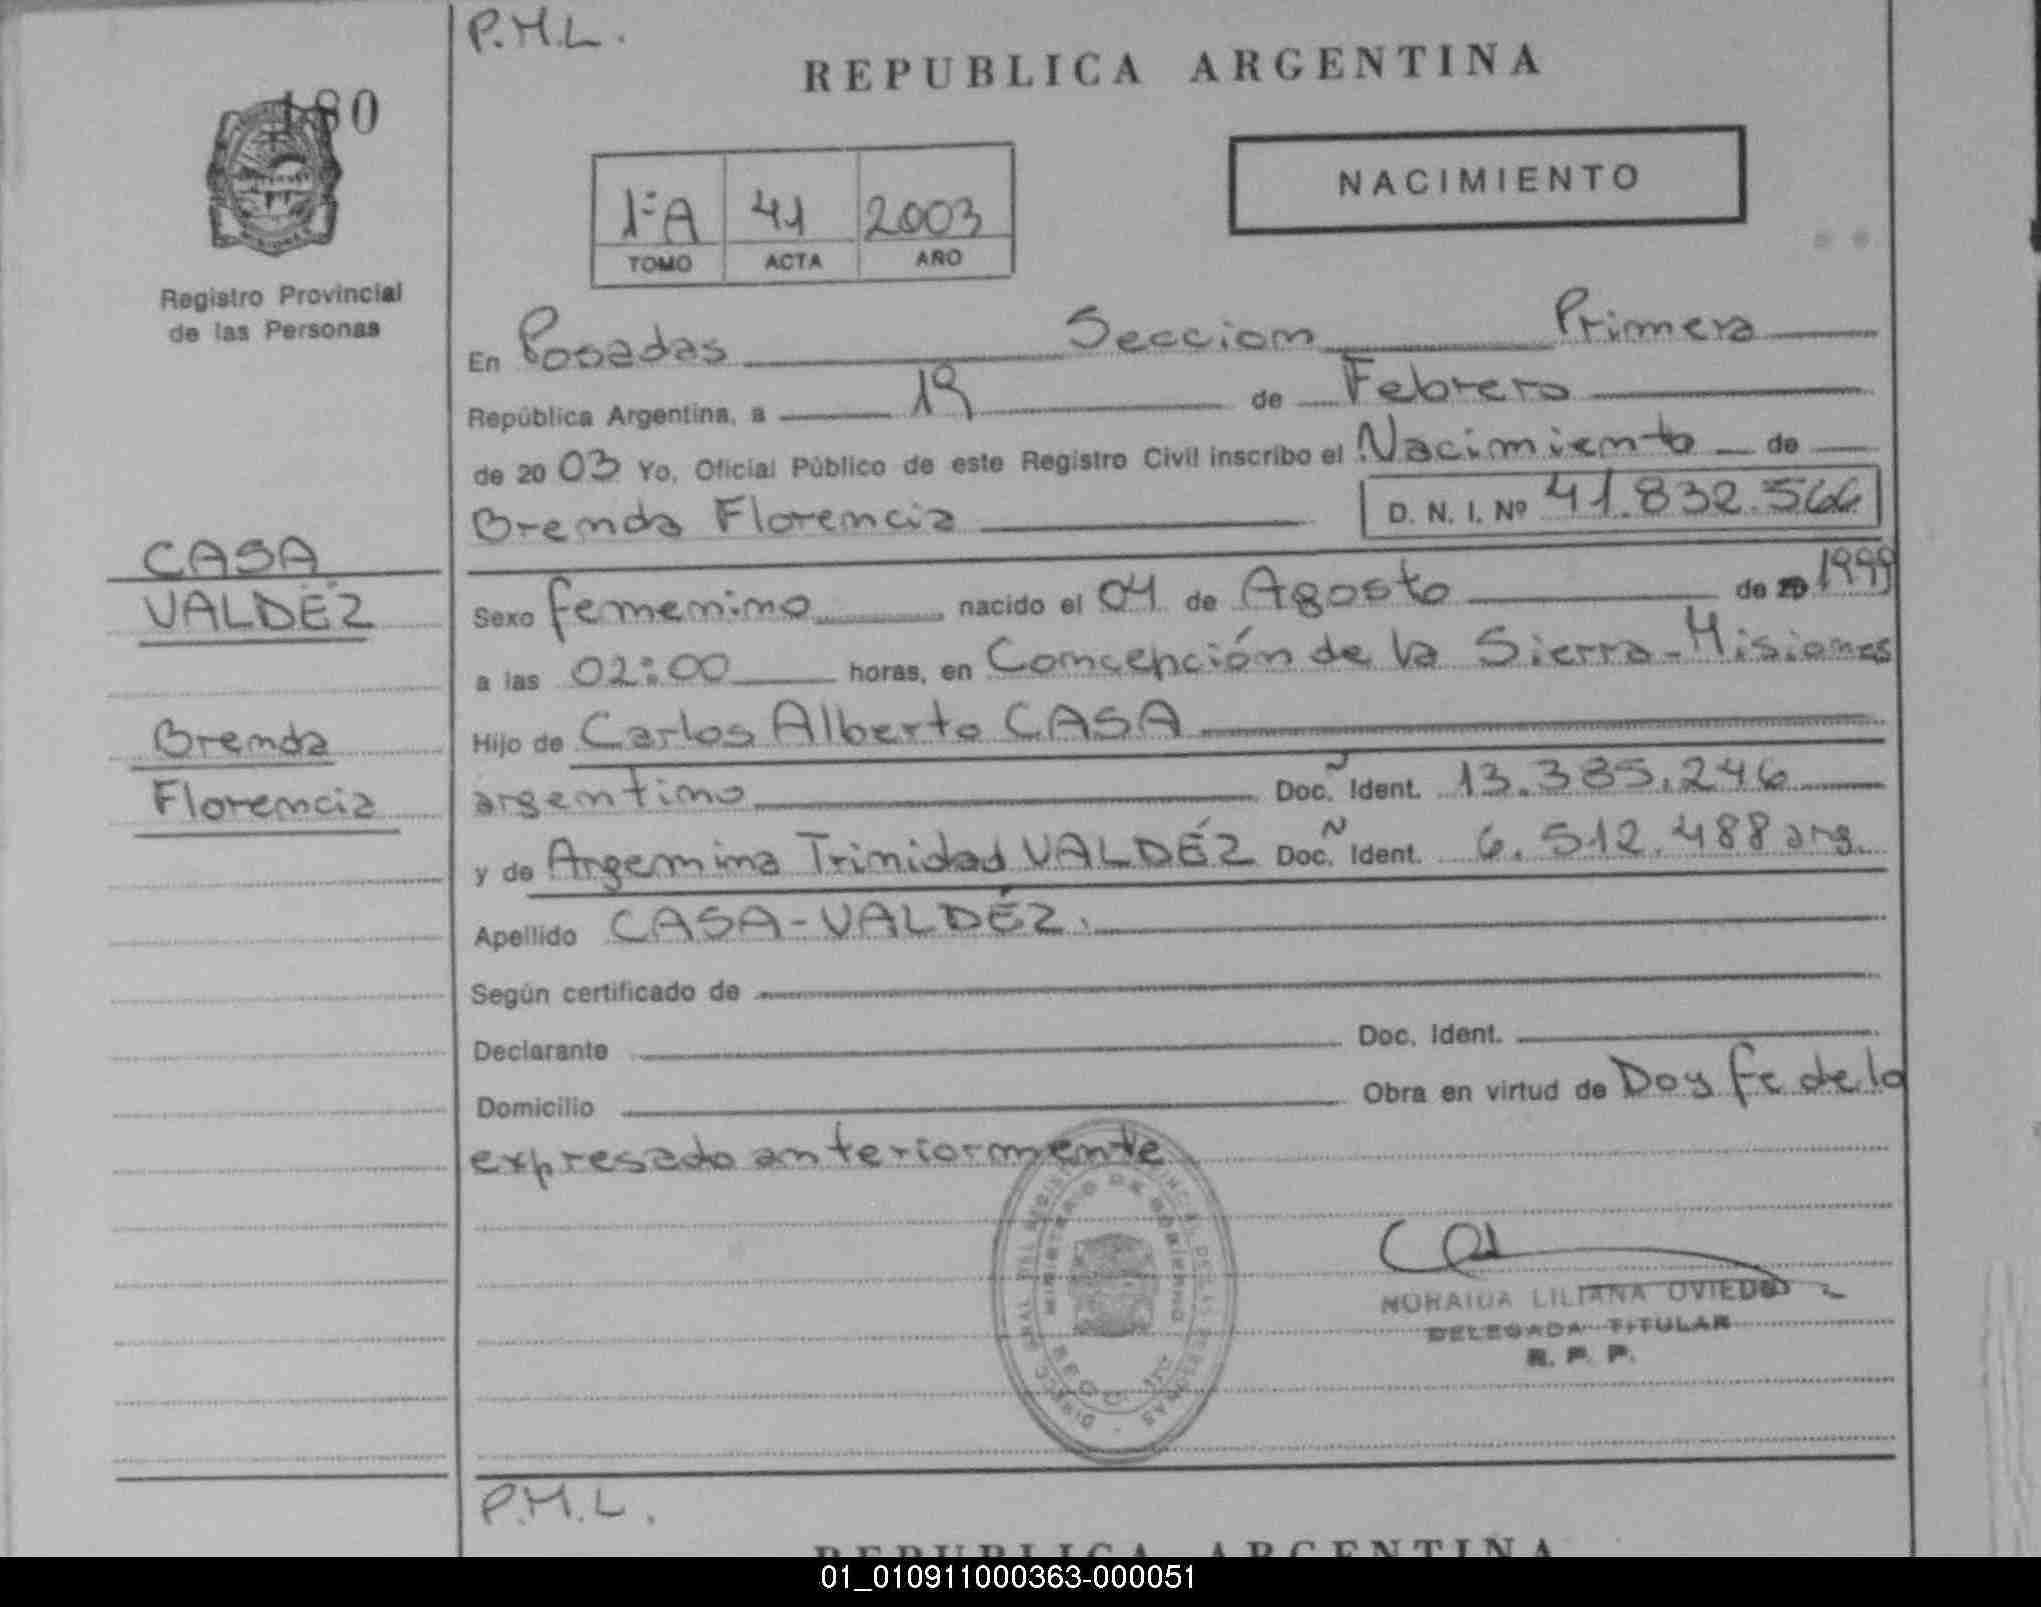 P.M.L.
REPUBLICA ARGENTINA
180
NACIMIENTO
1ºA 41 2003
TOMO ACTA AÑO
Registro Provincial
de las Personas
En Posadas Seccion Primera
República Argentina, a 19 de Febrero
de 2003 Yo, Oficial Público de este Registro Civil inscribo el Nacimiento de
Brenda Florencia D. N. I. Nº 41.832.566
CASA
VALDÉZ
Brenda
Florencia
Sexo femenino nacido el 04 de Agosto de 20 1999
a las 02:00 horas, en Concepción de la Sierra-Misiones
Hijo de Carlos Alberto CASA
argentino Doc. Ñ Ident. 13.385.246
y de Argennina Trinidad VALDÉZ Doc. Ñ Ident. 6.512.488 arg.
Apellido CASA-VALDÉZ.
Según certificado de
Declarante Doc. Ident.
Domicilio Obra en virtud de Doy fe de lo
expresado anteriormente
MINISTERIO DE GOBIERNO
NORAIDA LILIANA OVIEDO
DELEGADA TITULAR
R. P. P.
P.M.L.
REPUBLICA ARGENTINA
01_010911000363-000051